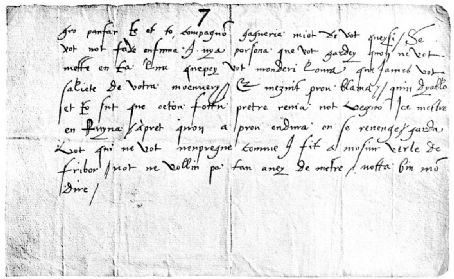 7
gro panfar te et to compagnon gagneria miot de vot queysi / Se
vot not fade enfuma / I nya persona que vot gardey quon ne vot
mette en ta lua quepey vot monderi loura que jamet vot
saliete de votra moennery // Et mezuit prou blama / quin dyablo
et to sut que ceton fottu pretre renia not vegnon ice mettre
en Ruyna / Apret quon a prou endura on se revenge / garda
vot qui ne vot nenpregne comme I fit a mosur verle de
fribor / not ne vollin pa tan avey de metre / notta bin mon
dire /